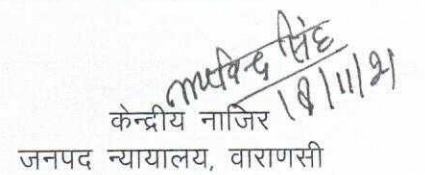 सिंह
18/11/21
केन्द्रीय नाजिर
जनपद न्यायालय, वाराणसी